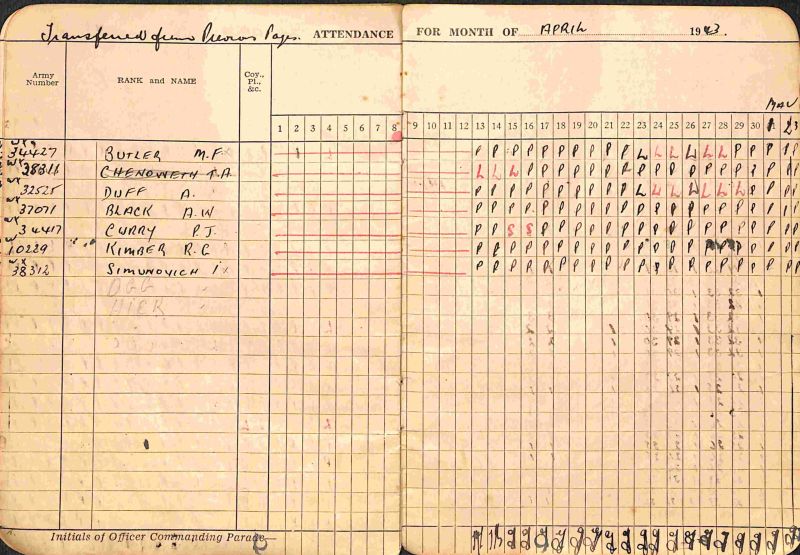 Transferred from Previous Pages. ATTENDANCE FOR MONTH OF APRIL 1943.
Army Number RANK and NAME Coy., Pl., &c.
MAY
1 2 3 4 5 6 7 8 9 10 11 12 13 14 15 16 17 18 19 20 21 22 23 24 25 26 27 28 29 30 1 2 3
WX 34427 BUTLER M.F P P P P P P P P P P L L L L L L P P P P P
WX 38311 CHENOWETH T.A L L L P P P P P P P P P P P P P P P P P P
WX 32525 DUFF A. P P P P P P P P P P L L L L L L L L P P P
WX 37071 BLACK A.W P P P P P P P P P P P P P P P P P P P P P
WX 34417 CURRY P.J. P P S S P P P P P P P P P P P P P P P P P
W 10229 KIMBER R.G P P P P P P P P P P P P P P P P P P P
WX 38312 SIMUNOVICH I P P P P P P P P P P P P P P P P P P P P P
OGG
HICK
Initials of Officer Commanding Parade—